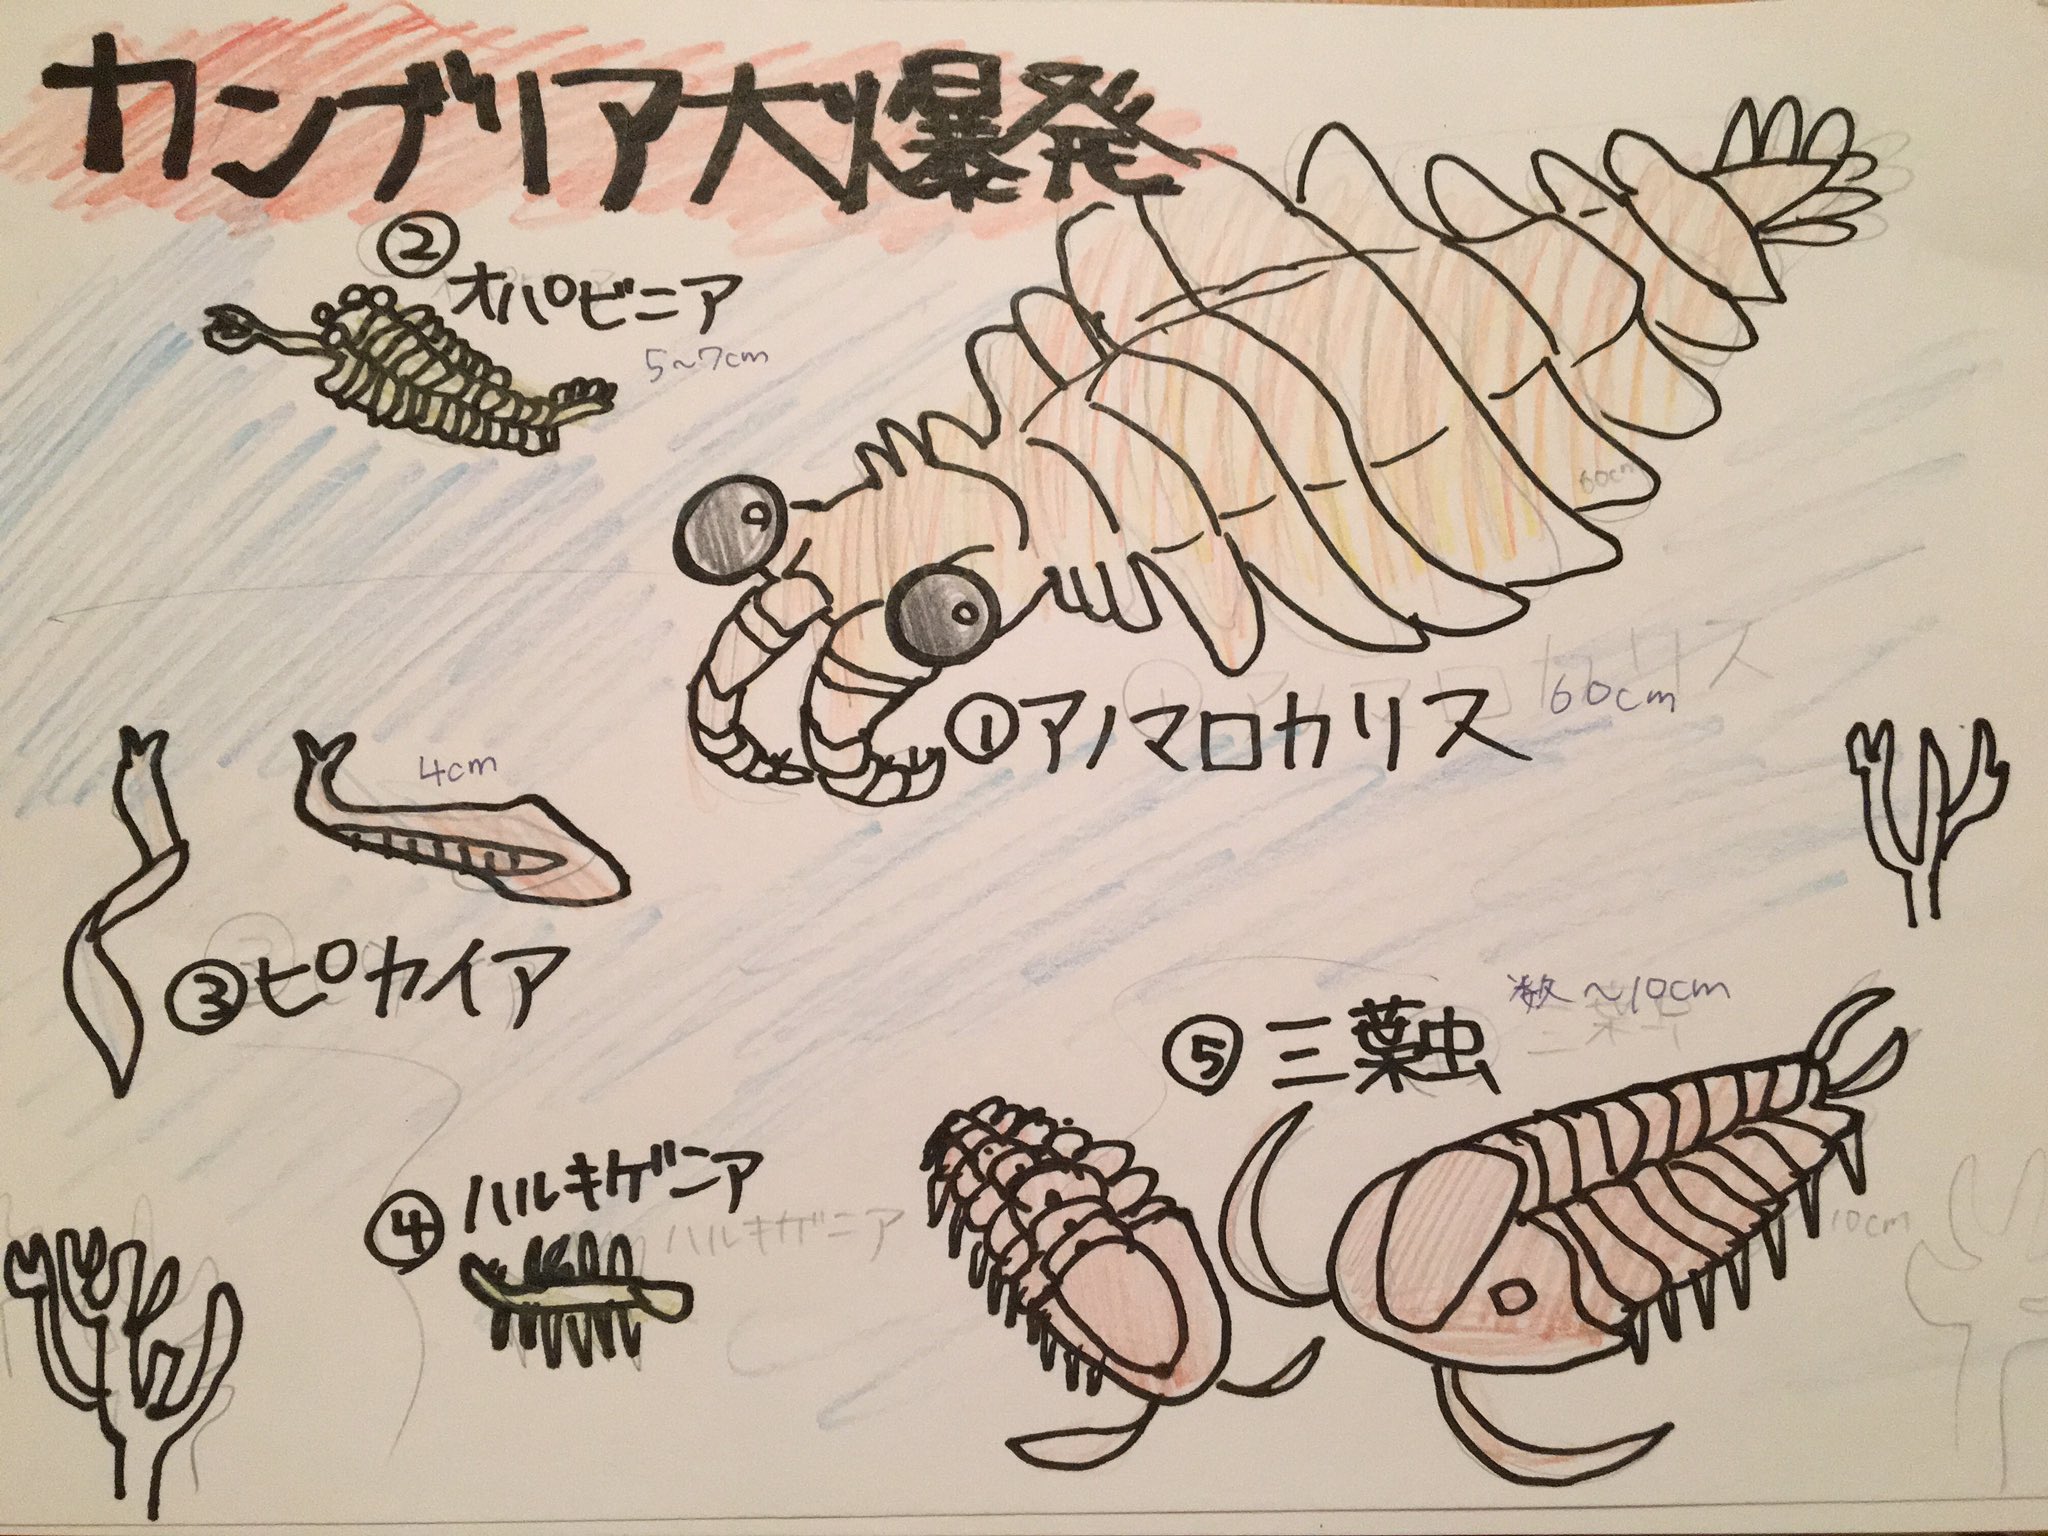 カンブリア大爆発
②オパビニア
5~7cm
60cm
①アノマロカリス
60cm
4cm
③ピカイア
数~10cm
⑤三葉虫
④ハルキゲニア
ハルキゲニア
10cm